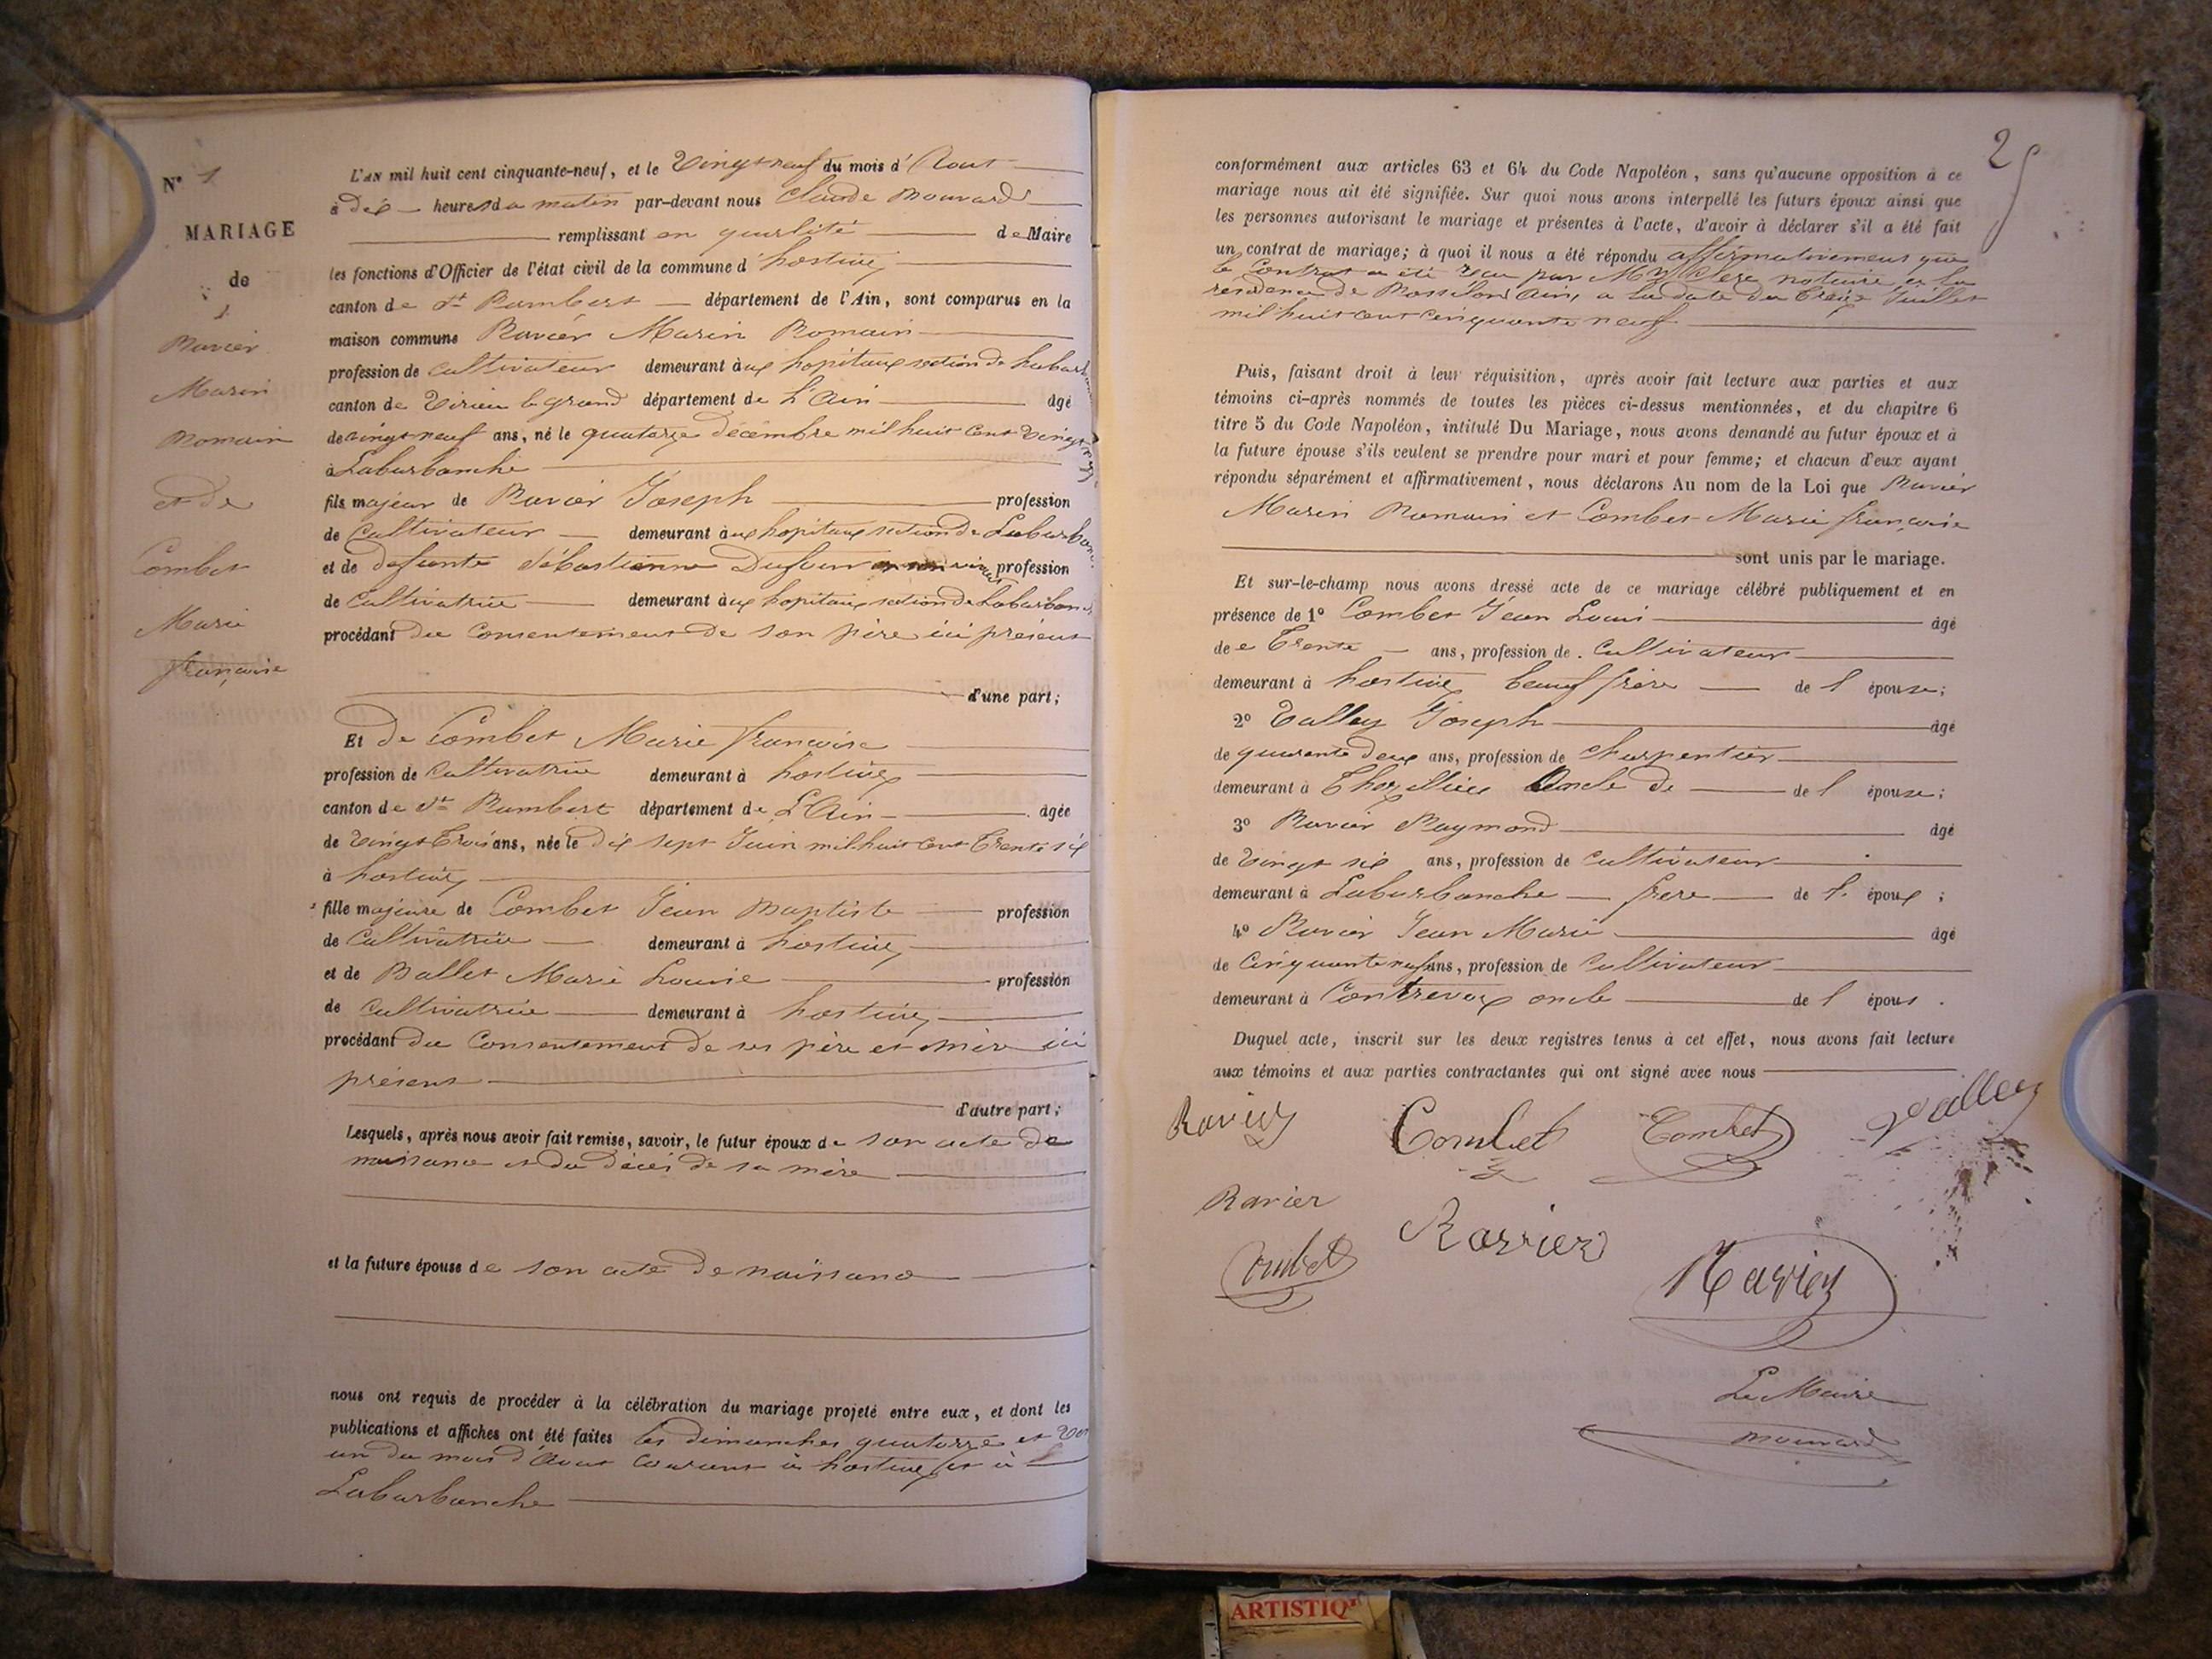 N° 1
MARIAGE
de
Ravier
Marin
Romain
et de
Combet
Marie
françoise
L'AN mil huit cent cinquante-neuf, et le Vingt neuf du mois d'Aout
à dix heures du matin par-devant nous Claude Mouvard
remplissant en qualité de Maire
les fonctions d'Officier de l'état civil de la commune d'hostiaz
canton de St Rambert département de l'Ain, sont comparus en la
maison commune Ravier Marin Romain
profession de cultivateur demeurant aux hopitaux section de Laburbanche
canton de Virieu le grand département de L'Ain âgé
de vingt neuf ans, né le quatorze décembre mil huit cent vingt neuf
à Laburbanche
fils majeur de Ravier Joseph profession
de Cultivateur demeurant aux hopitaux section de Laburbanche
et de defunte Sébastienne Dufour en son vivant profession
de Cultivatrice demeurant aux hopitaux section de Laburbanche
procédant du Consentement de son père ici présent
d'une part;
Et De Combet Marie françoise
profession de Cultivatrice demeurant à hostiaz
canton de St Rambert département de L'Ain âgée
de Vingt trois ans, née le dix sept Juin mil huit cent trente six
à hostiaz
fille majeure de Combet Jean Baptiste profession
de Cultivatrice demeurant à hostiaz
et de Ballet Marie Louise profession
de Cultivatrice demeurant à hostiaz
procédant du Consentement de ses père et mère ici
présent
d'autre part;
Lesquels, après nous avoir fait remise, savoir, le futur époux de son acte de
naissance et du décès de sa mère
et la future épouse de son acte de naissance
nous ont requis de procéder à la célébration du mariage projeté entre eux, et dont les
publications et affiches ont été faites les dimanches quatorze et
un du mois d'Aout courant à hostiaz et à
Laburbanche
25
conformément aux articles 63 et 64 du Code Napoléon, sans qu'aucune opposition à ce
mariage nous ait été signifiée. Sur quoi nous avons interpellé les futurs époux ainsi que
les personnes autorisant le mariage et présentes à l'acte, d'avoir à déclarer s'il a été fait
un contrat de mariage; à quoi il nous a été répondu affirmativement que
le Contrat a été reçu par notaire en la
résidence de Rossillon Ain, a la date du treize Juillet
mil huit cent cinquante neuf
Puis, faisant droit à leur réquisition, après avoir fait lecture aux parties et aux
témoins ci-après nommés de toutes les pièces ci-dessus mentionnées, et du chapitre 6
titre 5 du Code Napoléon, intitulé Du Mariage, nous avons demandé au futur époux et à
la future épouse s'ils veulent se prendre pour mari et pour femme; et chacun d'eux ayant
répondu séparément et affirmativement, nous déclarons Au nom de la Loi que Ravier
Marin Romain et Combet Marie françoise
sont unis par le mariage.
Et sur-le-champ nous avons dressé acte de ce mariage célébré publiquement et en
présence de 1° Combet Jean Louis âgé
de trente ans, profession de Cultivateur
demeurant à hostiaz beauf frère de l épouse;
2° Valley Joseph âgé
de quarante deux ans, profession de charpentier
demeurant à Thezillieu Oncle de de l épouse;
3° Ravier Raymond âgé
de Vingt six ans, profession de Cultivateur
demeurant à Laburbanche frere de l' époux;
4° Ravier Jean Marie âgé
de Cinquante neuf ans, profession de Cultivateur
demeurant à Contrevoz oncle de l époux.
Duquel acte, inscrit sur les deux registres tenus à cet effet, nous avons fait lecture
aux témoins et aux parties contractantes qui ont signé avec nous
Ravier Combet Combet Valley
Ravier Ravier
Combet Ravier
Le Maire
Mouvard
ARTISTIQ